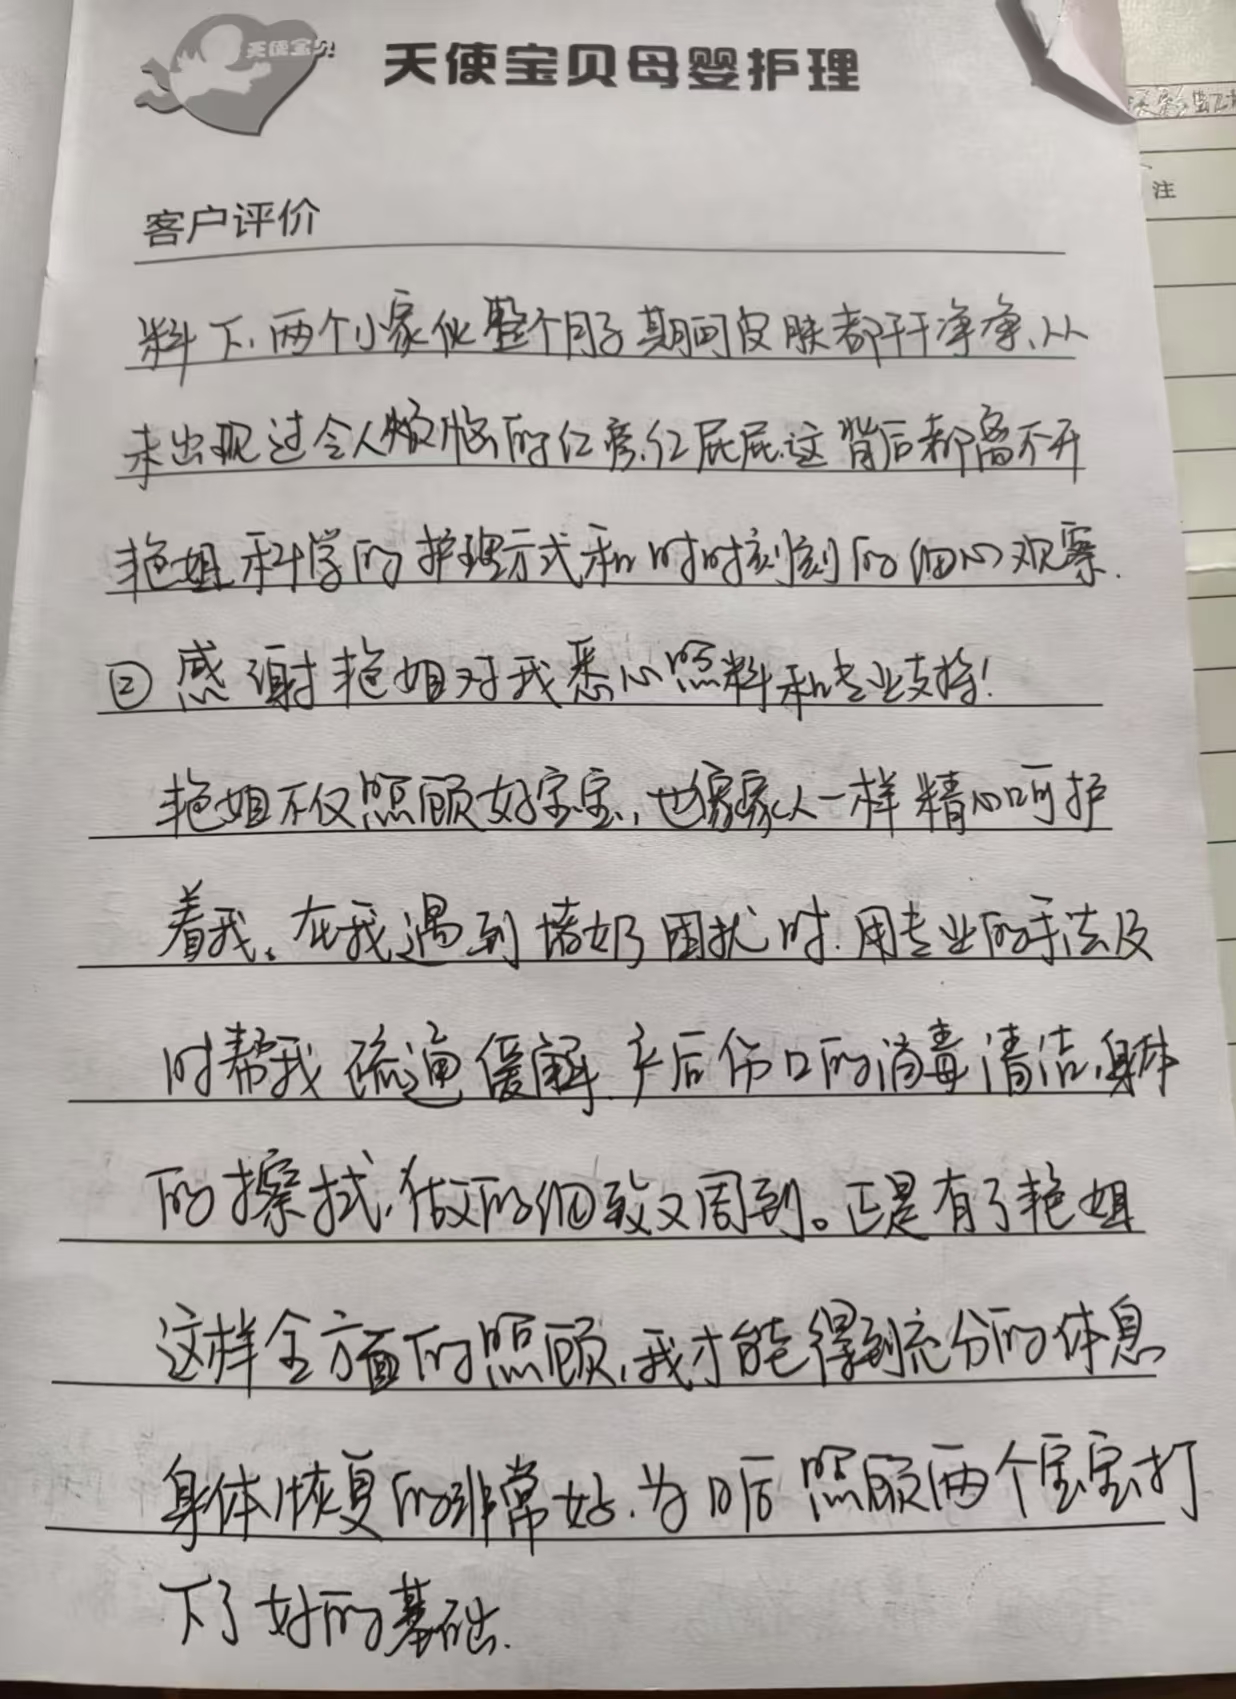 天使宝贝
天使宝贝母婴护理
注
客户评价
料下、两个小家伙整个月子期间皮肤都干干净净、从
未出现过令人烦恼的红疹、红屁屁、这背后都离不开
艳姐科学的护理方式和时时刻刻的细心观察.
② 感谢艳姐对我悉心照料和专业支持!
艳姐不仅照顾好宝宝，也像家人一样精心呵护
着我。在我遇到堵奶困扰时.用专业的手法及
时帮我疏通缓解.产后伤口的消毒清洁、身体
的擦拭，做的细致又周到。正是有了艳姐
这样全方面的照顾，我才能得到充分的休息
身体恢复的非常好.为日后照顾两个宝宝打
下了好的基础.